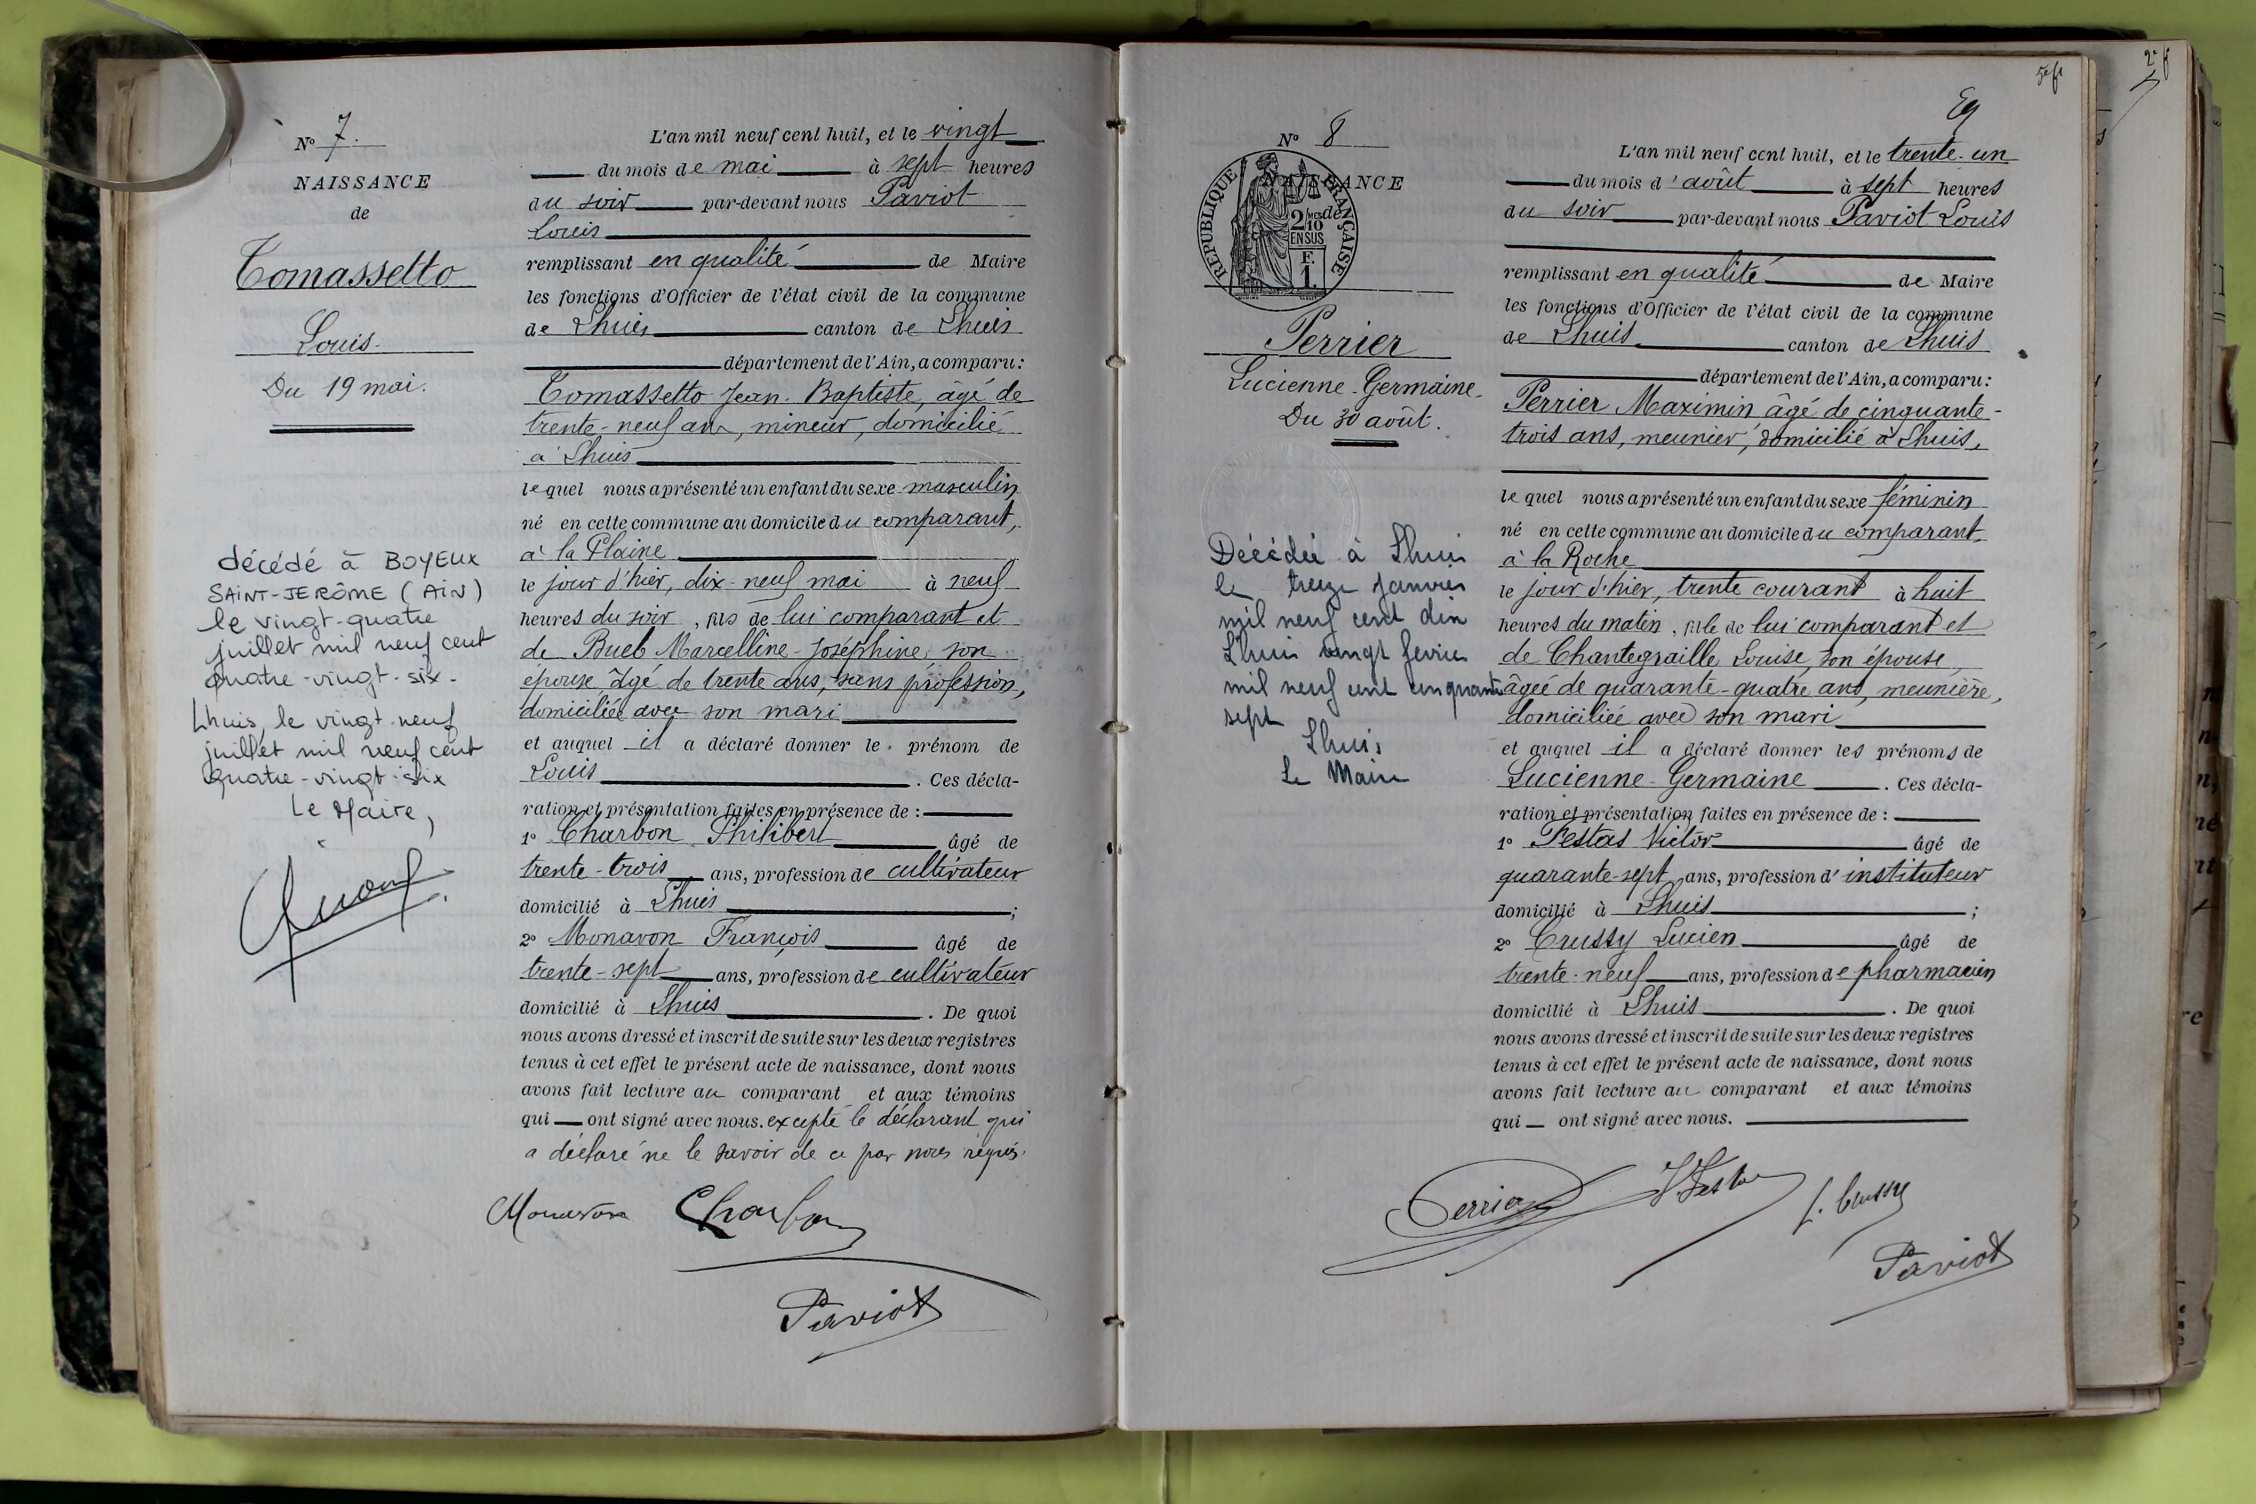 N° 7.
NAISSANCE
de
Tomassetto
Louis.
Du 19 mai.
décédé à BOYEUX
SAINT-JERÔME (AIN)
le vingt-quatre
juillet mil neuf cent
quatre-vingt-six.
Lhuis, le vingt-neuf
juillet mil neuf cent
quatre-vingt-six
Le Maire,
L'an mil neuf cent huit, et le vingt
du mois de mai à sept heures
du soir par-devant nous Paviot
Louis
remplissant en qualité de Maire
les fonctions d'Officier de l'état civil de la commune
de Lhuis canton de Lhuis
département de l'Ain, a comparu:
Tomassetto Jean-Baptiste, âgé de
trente-neuf ans, mineur, domicilié
à Lhuis
lequel nous a présenté un enfant du sexe masculin
né en cette commune au domicile du comparant,
à la Plaine
le jour d'hier, dix-neuf mai à neuf
heures du soir, fils de lui comparant et
de Bueb Marcelline-Joséphine, son
épouse, âgé de trente ans, sans profession,
domiciliée avec son mari
et auquel il a déclaré donner le prénom de
Louis. Ces décla-
ration et présentation faites en présence de :
1° Charbon Philibert âgé de
trente-trois ans, profession de cultivateur
domicilié à Lhuis ;
2° Monavon François âgé de
trente-sept ans, profession de cultivateur
domicilié à Lhuis. De quoi
nous avons dressé et inscrit de suite sur les deux registres
tenus à cet effet le présent acte de naissance, dont nous
avons fait lecture au comparant et aux témoins
qui ont signé avec nous. excepté le déclarant qui
a déclaré ne le savoir de ce par nous requis.
Monavon Charbon
Paviot
5e ft
2e f
N° 8
NAISSANCE
de
RÉPUBLIQUE FRANÇAISE
2/10
EN SUS
F.
1.
Perrier
Lucienne-Germaine.
Du 30 août.
Décédée à Lhuis
le treize janvier
mil neuf cent dix
Lhuis vingt fevrier
mil neuf cent cinquante
sept
Lhuis
Le Maire
L'an mil neuf cent huit, et le trente-un
du mois d'août à sept heures
du soir par-devant nous Paviot Louis
remplissant en qualité de Maire
les fonctions d'Officier de l'état civil de la commune
de Lhuis canton de Lhuis
département de l'Ain, a comparu:
Perrier Maximin âgé de cinquante-
trois ans, meunier, domicilié à Lhuis,
lequel nous a présenté un enfant du sexe féminin
né en cette commune au domicile du comparant,
à la Roche
le jour d'hier, trente courant à huit
heures du matin, fille de lui comparant et
de Chantegraille Louise, son épouse,
âgée de quarante-quatre ans, meunière,
domiciliée avec son mari
et auquel il a déclaré donner les prénoms de
Lucienne-Germaine. Ces décla-
ration et présentation faites en présence de :
1° Festas Victor âgé de
quarante-sept ans, profession d'instituteur
domicilié à Lhuis ;
2° Crussy Lucien âgé de
trente-neuf ans, profession de pharmacien
domicilié à Lhuis. De quoi
nous avons dressé et inscrit de suite sur les deux registres
tenus à cet effet le présent acte de naissance, dont nous
avons fait lecture au comparant et aux témoins
qui ont signé avec nous.
Perrier V Festas L. Crussy
Paviot